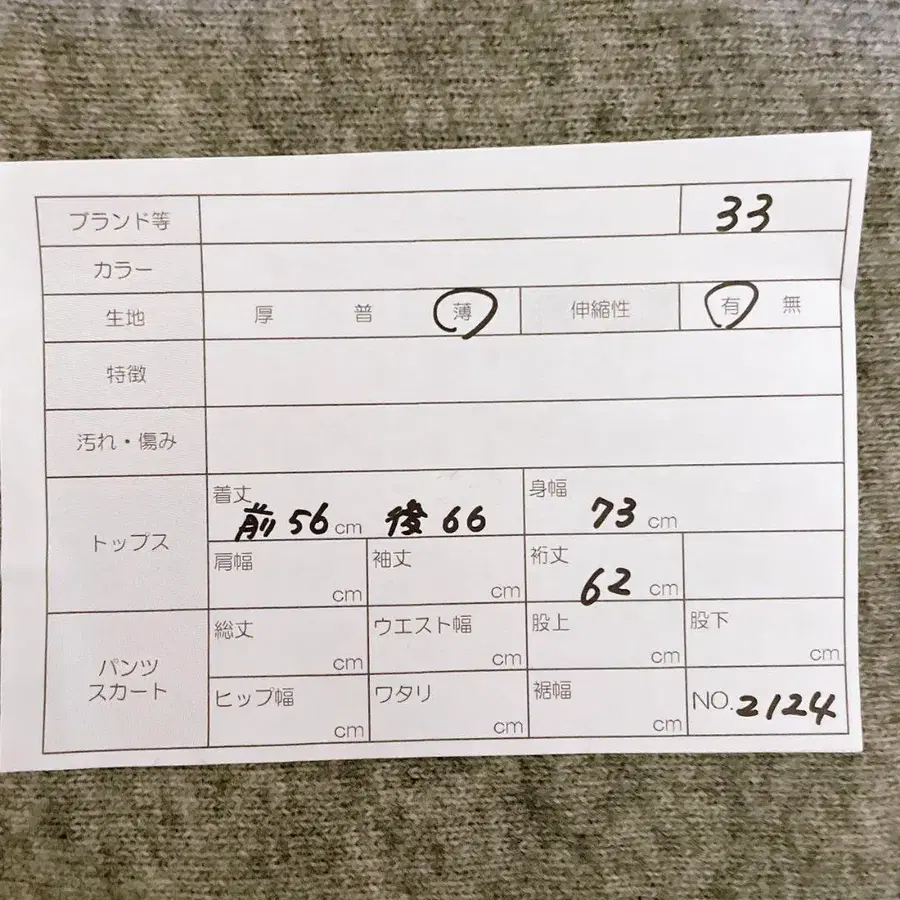 ブランド等 33
カラー
生地 厚 普 薄 伸縮性 有 無
特徴
汚れ・傷み
トップス
着丈 前56cm 後66 身幅 73cm
肩幅 cm 袖丈 cm 裄丈 62cm
パンツ
スカート
総丈 cm ウエスト幅 cm 股上 cm 股下 cm
ヒップ幅 cm ワタリ cm 裾幅 cm NO.2124